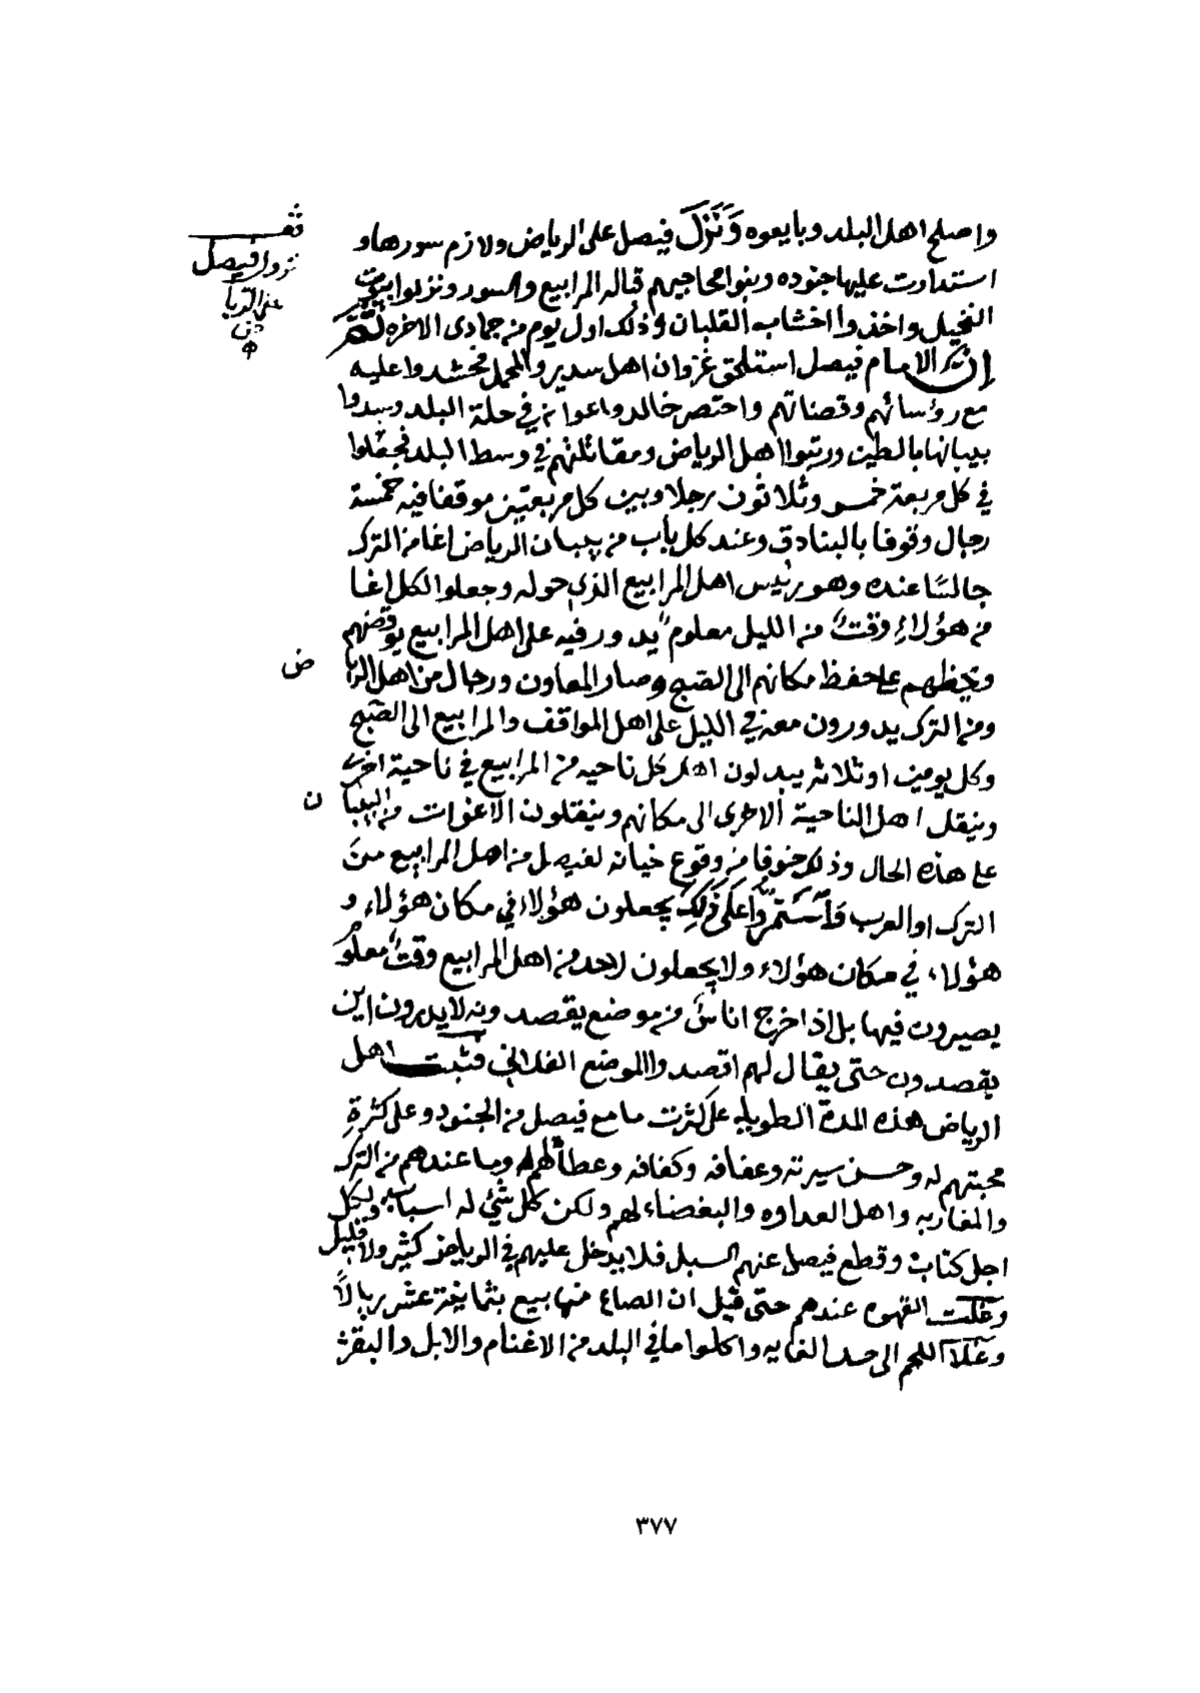 واصلح اهل البلد وبايعوه وَنَزَلَ فيصل على الرياض ولازم سورها و
استدارت عليها جنوده وبنوا محاجيهم قباله المرابيع والسور ونزلوا بيوت
النخيل واخذوا اخشاب القلبان وذلك اول يوم من جمادى الاخره ثُمَّ
إن الامام فيصل استلحق غزوان اهل سدير والمحمل فحشدوا عليه
مع رؤسائهم وقضاتهم واحتصر خالد واعوانه في حلة البلد وسدوا
بيبانها بالطين ورتبوا اهل الرياض ومقاتلتهم في وسط البلد فجعلوا
في كل مربعة خمس وثلاثون رجلا وبين كل مربعتين موقفا فيه خمسة
رجال وقوفا بالبنادق وعند كل باب من بيبان الرياض اغا من الترك
جالسًا عنده وهو رئيس اهل المرابيع الذي حوله وجعلوا لكل اغا
من هؤلاءِ وقتٌ من الليل معلوم يدور فيه على اهل المرابيع يوقضهم
ويحظهم على حفظ مكانهم الى الصبح وصار المعاون ورجال من اهل الريا ض
ومن الترك يدورون معه في الليل على اهل المواقف والمرابيع الى الصبح
وكل يومين او ثلاثه يبدلون اهل كل ناحيه من المرابيع في ناحية اخرى
وينقل اهل الناحية الاخرى الى مكانهم وينقلون الاغوات من البيبا ن
على هذه الحال وذلك خوفا من وقوع خيانه لفيصل من اهل المرابيع من
الترك او العرب فَأسْتَمَرُّوا عَلَى ذَلِكَ يجعلون هؤلاء في مكان هؤلاء و
هؤلاء في مكان هؤلاء ولا يجعلون لاحد من اهل المرابيع وقتٌ معلومٌ
يصيرون فيها بل اذا خرج اناسٌ من موضع يقصدونه لا يدرون اين
يقصدون حتى يقال لهم اقصدوا الموضع الفلاني فثبت اهل
الرياض هذه المدة الطويله على كثرت ما مع فيصل من الجنود وعلى كثرةِ
محبتهم له وحسن سيرته وعفافه وكفافه وعطاه لهم وما عندهم من الترك
والمغاربه واهل العداوه والبغضاء لهم ولكن كل شيٍ له اسباب ولكل
اجل كتاب وقطع فيصل عنهم السبل فلا يدخل عليهم في الرياض كثير ولا قليل
وغلت القهوه عندهم حتى قيل ان الصاع منها بيع بثمانية عشر ريالاً
وغلآ اللحم الى حد الغايه واكلوا ما في البلد من الاغنام والابل والبقر
قف
نزول فيصل
على الريا
ض
٣٧٧